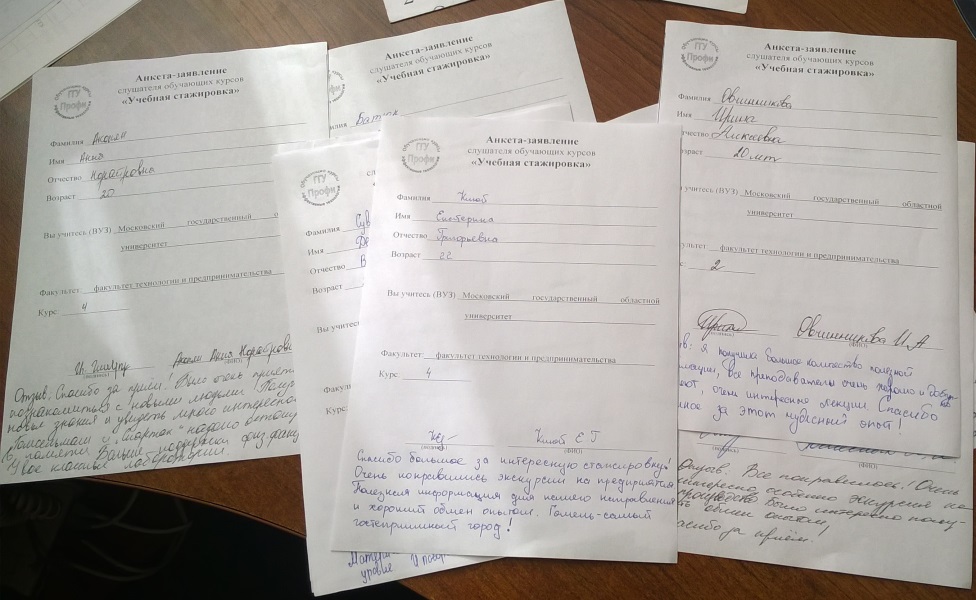 Анкета-заявление
слушателя обучающих курсов
«Учебная стажировка»
ГГУ
Профи
Фамилия
Имя Анна
Отчество
Возраст 20
Вы учитесь (ВУЗ) Московский государственный о
университет
Факультет факультет технологии и предпринимательства
Курс 4
(подпись) (ФИО)
Отзыв. Спасибо за прием! Было очень приятно
познакомиться с новыми людьми!
новые знания и увидеть много интересного
Гомсельмаш и „Спартак“ надолго останутся
в памяти. Больше поддержки физ.
У вас классные лаборатории.
Анкета-заявление
слушателя обучающих курсов
«Учебная стажировка»
милия
ГГУ
Профи
Фамилия Сув
Имя Де
Отчество В
Возраст
Вы учитесь
Факуль
Курс
уровне
Анкета-заявление
слушателя обучающих курсов
«Учебная стажировка»
ГГУ
Профи
Фамилия
Имя Екатерина
Отчество Григорьевна
Возраст 22
Вы учитесь (ВУЗ) Московский государственный областной
университет
Факультет факультет технологии и предпринимательства
Курс 4
Е Г
(подпись) (ФИО)
Спасибо большое за интересную стажировку!
Очень понравились экскурсии на предприятия
Полезная информация для нашего направления
и хороший обмен опытом. Гомель-самый
гостеприимный город!
Анкета-заявление
слушателя обучающих курсов
«Учебная стажировка»
ГГУ
Профи
Фамилия Овчинникова
Имя Ирина
тчество Алексеевна
зраст 20 лет
учитесь (ВУЗ) Московский государственный областной
университет
культет факультет технологии и предпринимательства
с 2
Овчинникова И.А
(подпись) (ФИО)
в: Я получила большое количество полезной
мации, все преподаватели очень хорошо и
ют, очень интересные лекции. Спасибо
мное за этот чудесный опыт!
Отзыв. Все понравилось! Очень
интересно особенно экскурсия на
производство. Было интересно
обмен опытом!
асибо за приём.